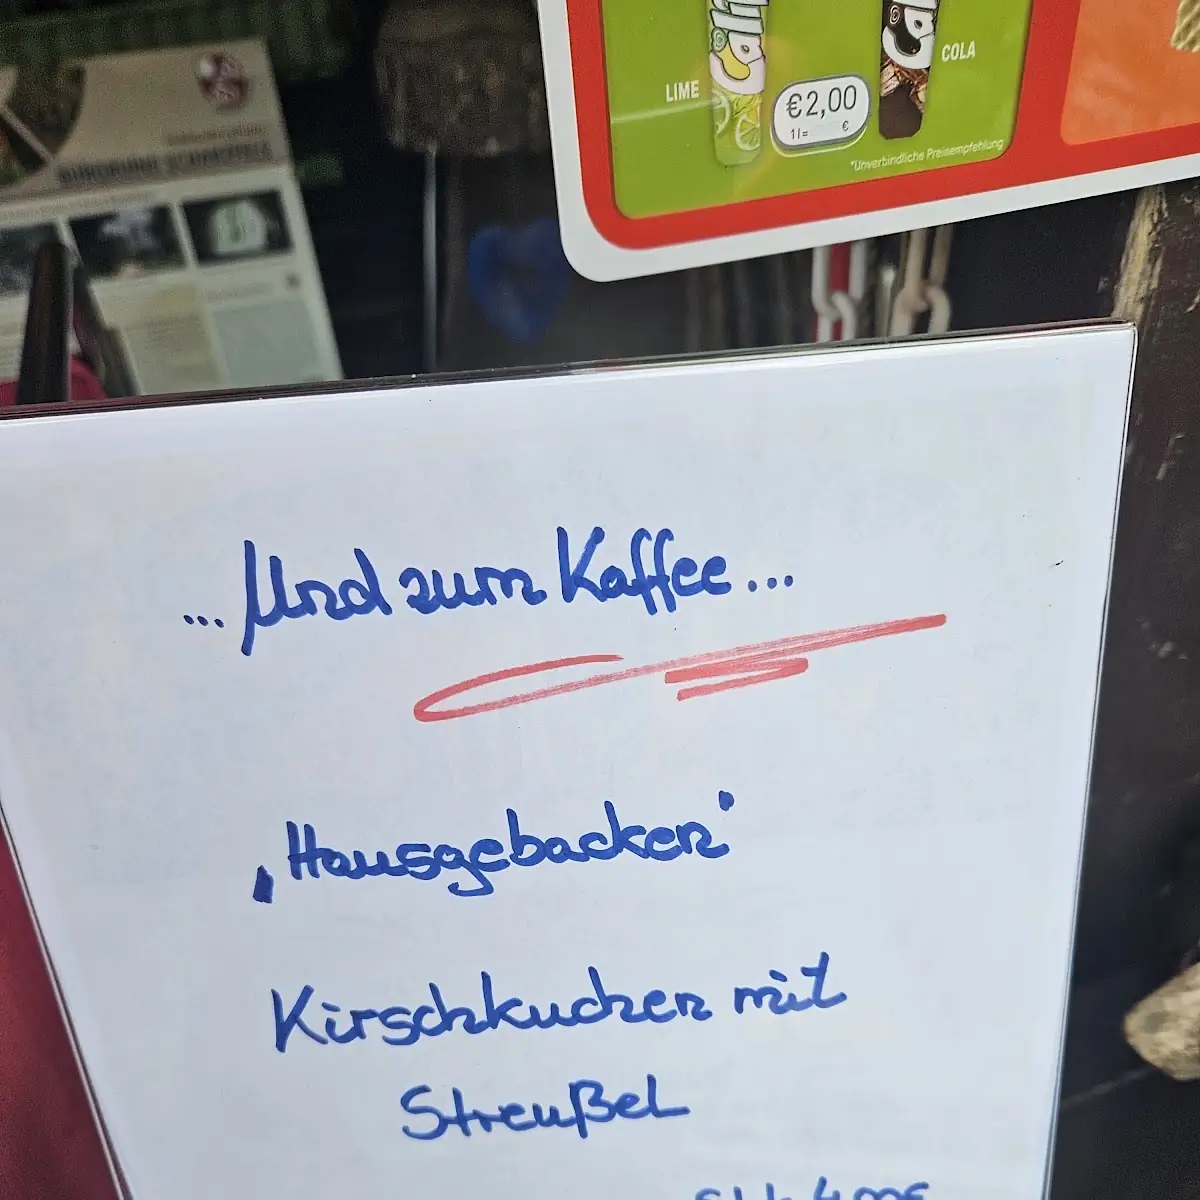 LIME
COLA
€2,00
1l= €
*Unverbindliche Preisempfehlung
... Und zum Kaffee ...
„Hausgebacken“
Kirschkuchen mit
Streußel